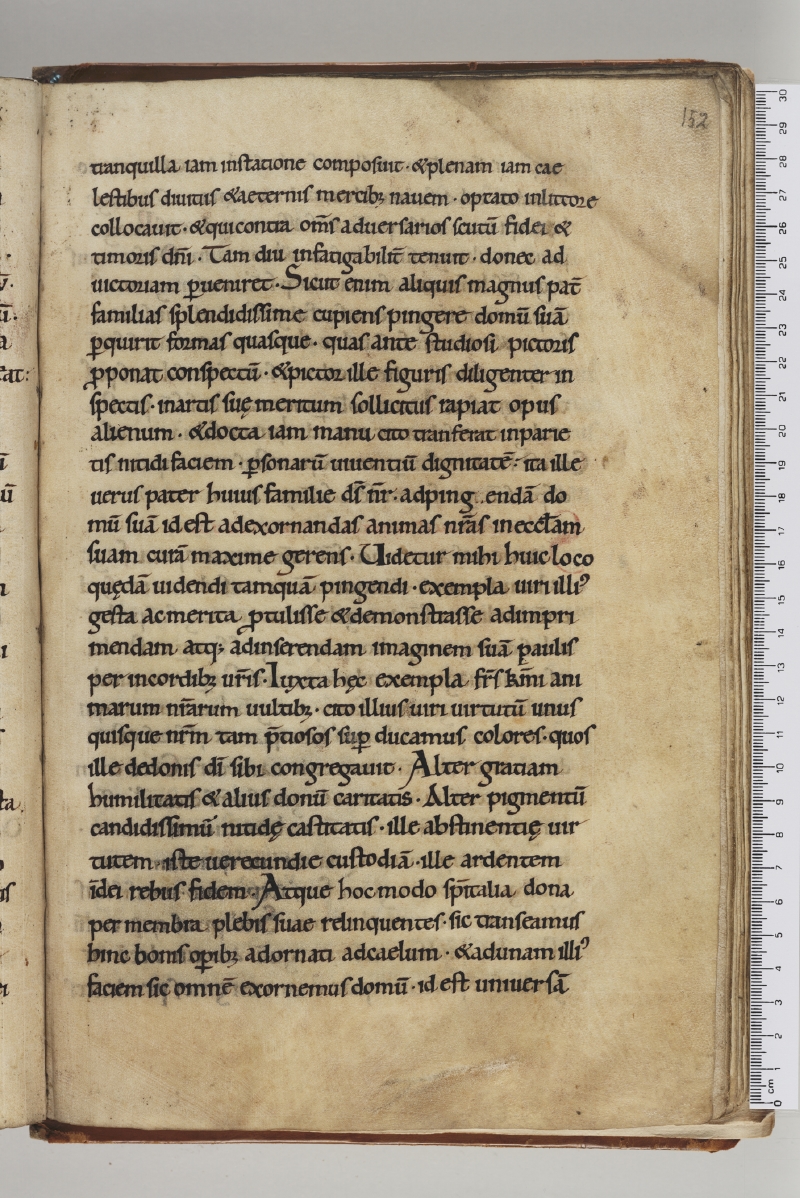 152
tranquilla iam instatione composuit · &plenam iam cae
lestibus diuitiis &aeternis mercib; nauem · optato inlittore
collocauit · &qui contra om̄s aduersarios scutū fidei &
timoris dn̄i · Tam diu infatigabilit̄ tenuit · donec ad
uictoriam ꝑueniret · Sicut enim aliquis magnus pat̄
familias splendidissime cupiens pingere domū suā
ꝑquirit formas quasque · quas ante studiosi pictoris
ꝓponat conspectū · &pictor ille figuris diligenter in
spectis · inartis suę meritum sollicitus rapiat opus
alienum · &docta iam manu cito tranferat inparie
tis nitidi faciem · ꝑsonarū uiuentiū dignitatē · ita ille
uerus pater huius familie ds̄ nr̄ · adping endā do
mū suā id est adexornandas animas nr̄as inecclam
suam curā maxime gerens · Uidetur mihi huic loco
quędā uidendi tamquā pingendi · exempla uiri illiꝰ
gesta ac merita ꝓtulisse &demonstrasse adimpri
mendam atq; adinserendam imaginem suā paulis
per incordib; ur̄is · Iuxta hęc exempla fr̄s km̄i ani
marum nr̄arum uultib; · cito illius uiri uirtutū unus
quisque nr̄m tam p̄tiosos suꝑ ducamus colores · quos
ille dedonis dī sibi congregauit · Alter gratiam
humilitatis &alius donū caritatis · Alter pigmentū
candidissimū nitidę castitatis · ille abstinentię uir
tutem · iste uerecundie custodiā · ille ardentem
īdei rebus fidem · Atque hoc modo sp̄italia dona
per membra plebis suae relinquentes · sic transeamus
hinc bonis oꝑib; adornati adcaelum · &adunam illiꝰ
faciem sic omnē exornemus domū · id est uniuersā